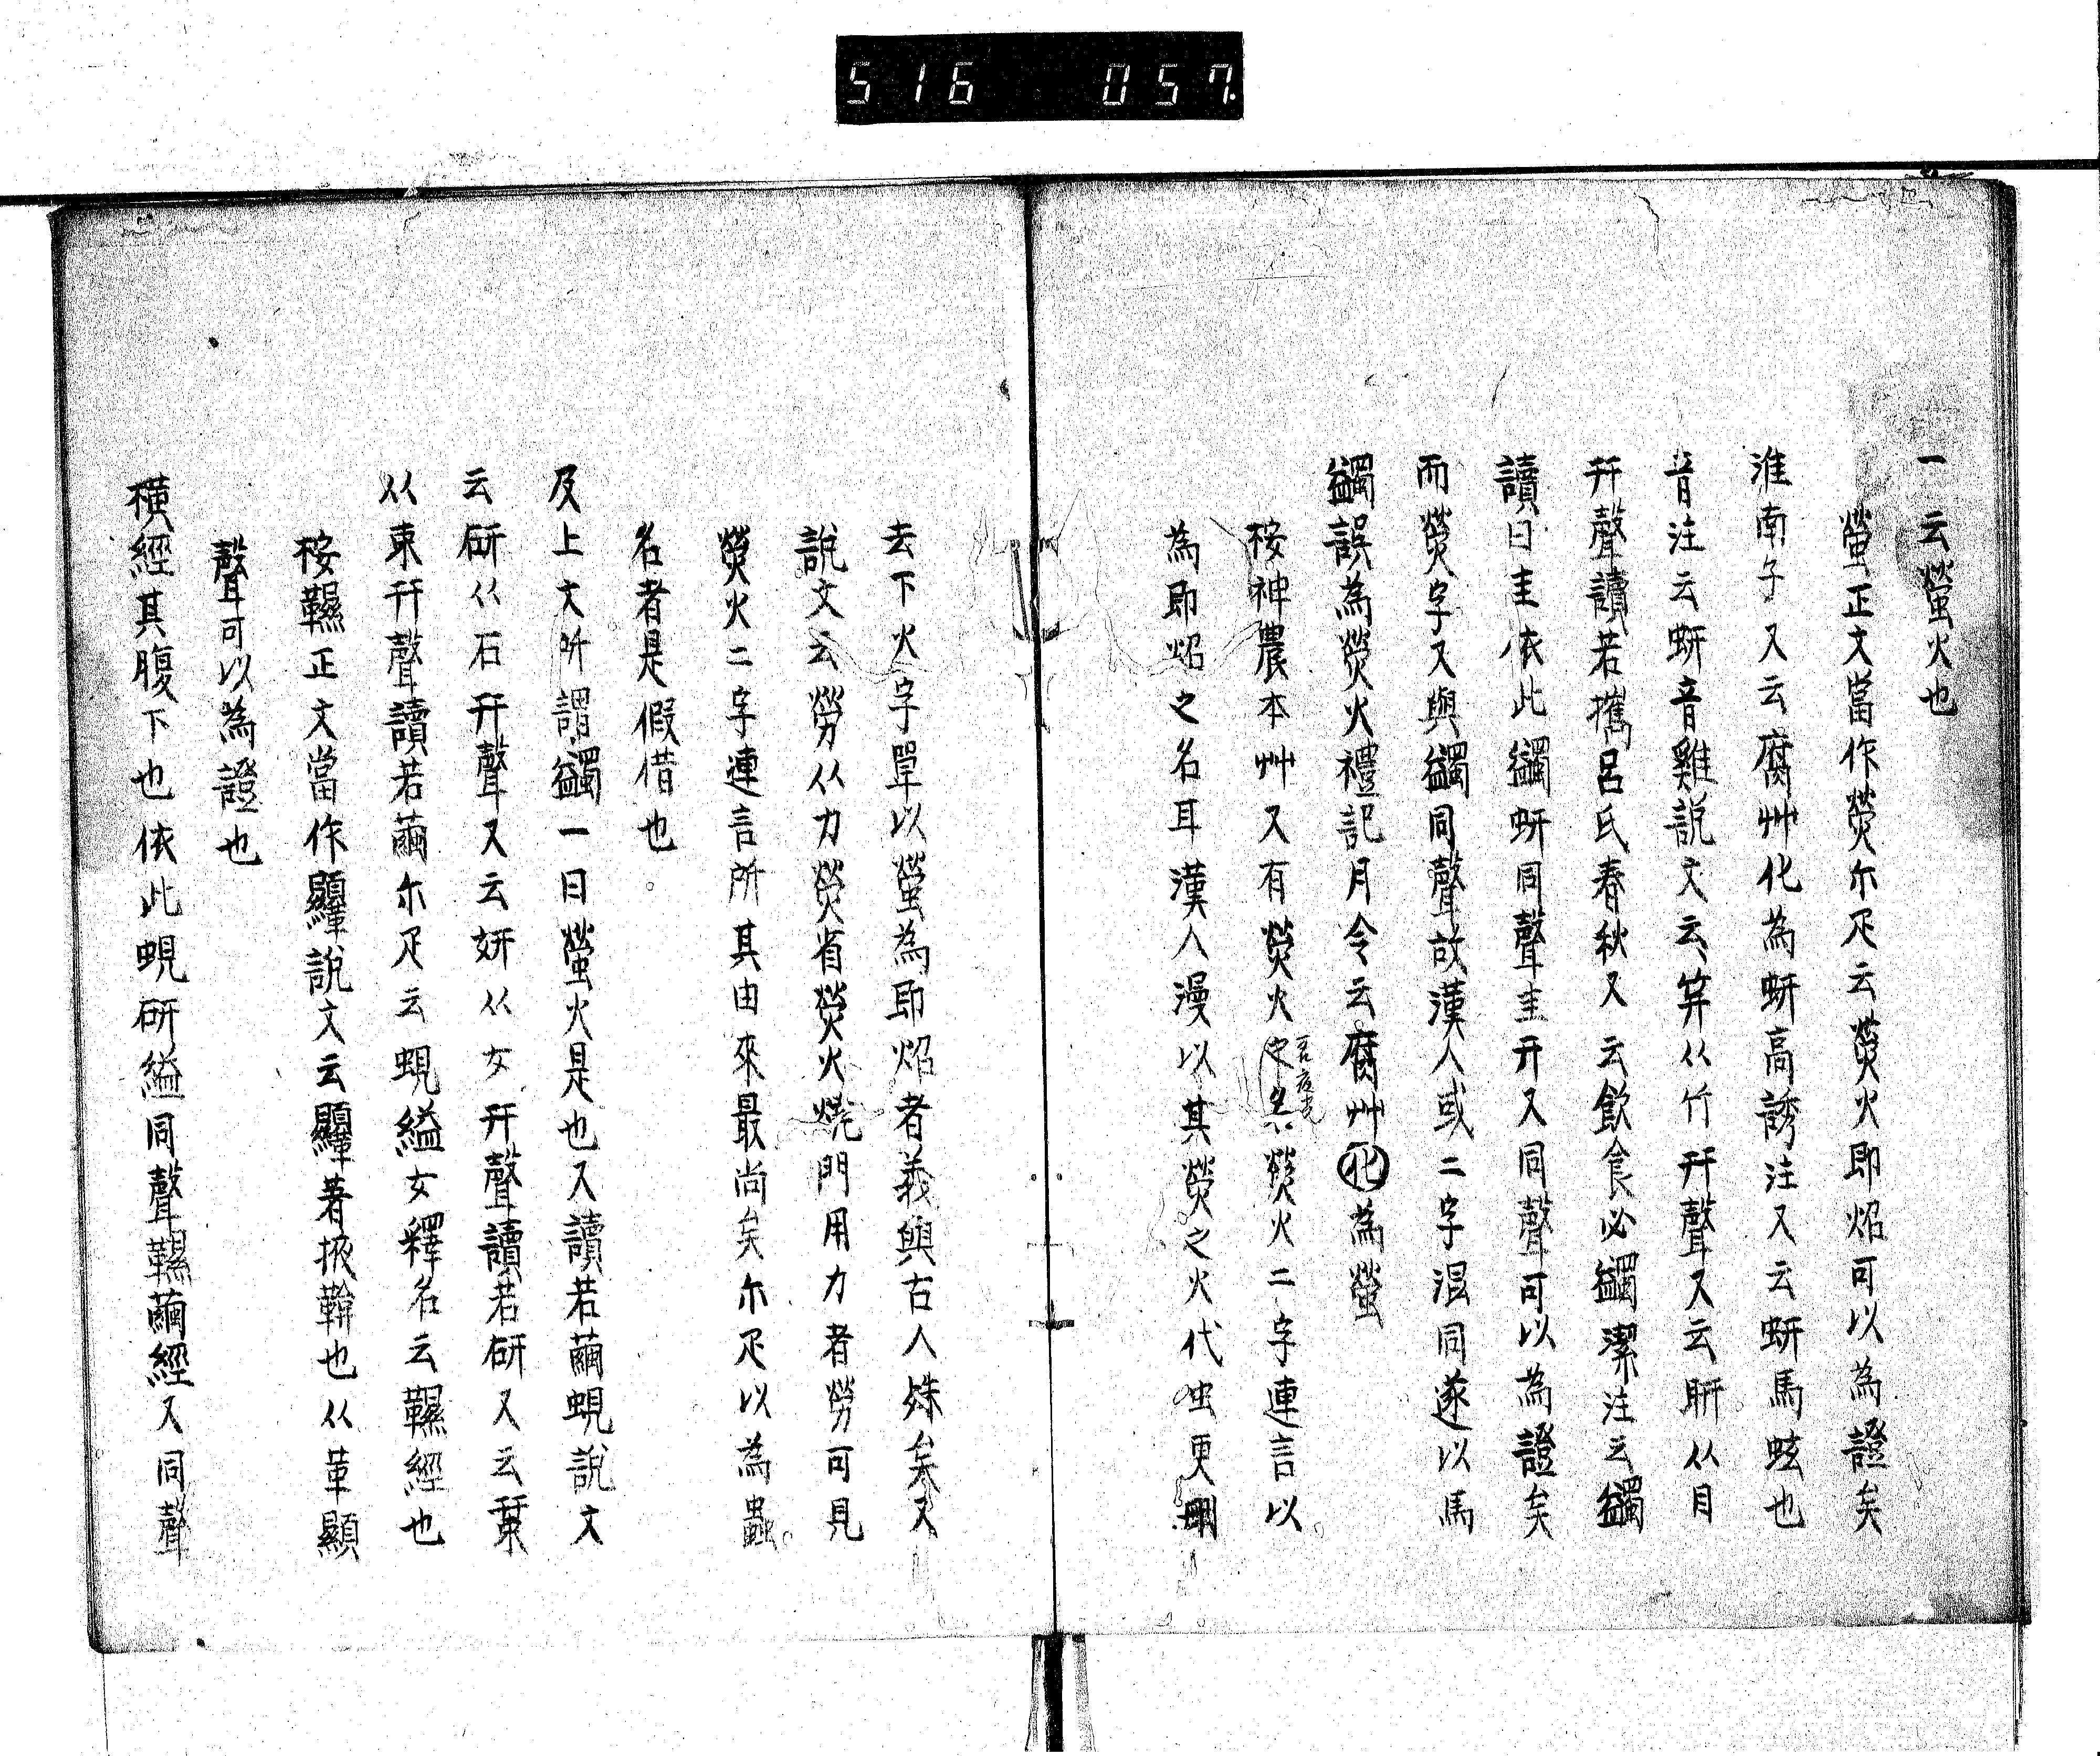 516 057.
一云螢火也
螢正文當作熒尓疋云熒火即炤可以為證矣
淮南子又云腐艸化為蚈高誘注又云蚈馬蚿也
音注云蚈音雞說文云筓从竹幵聲又云盰从目
幵聲讀若攜呂氏春秋又云飲食必蠲潔注云蠲
讀曰圭依此蠲蚈同聲圭幵又同聲可以為證矣
而熒字又與蠲同聲故漢人或二字混同遂以馬
蠲誤為熒火禮記月令云腐艸化為螢
桉神農本艸又有熒火之名熒火二字連言以
為即炤之名耳漢人漫以其熒之火代虫更
去下火字單以螢為即炤者義與古人殊矣又
說文云勞从力熒省熒火燒門用力者勞可見
熒火二字連言所其由來最尚矣尓疋以為蟲
名者是假借也。
及上文所謂蠲一曰螢火是也又讀若繭蜆說文
云研从石幵聲又云妍从女幵聲讀若研又云
从束幵聲讀若繭尓疋云蜆縊女釋名云韅經也
桉韅正文當作䪜說文云䪜著掖鞥也从革顯
聲可以為證也
橫經其腹下也依此蜆研縊同聲韅繭經又同聲